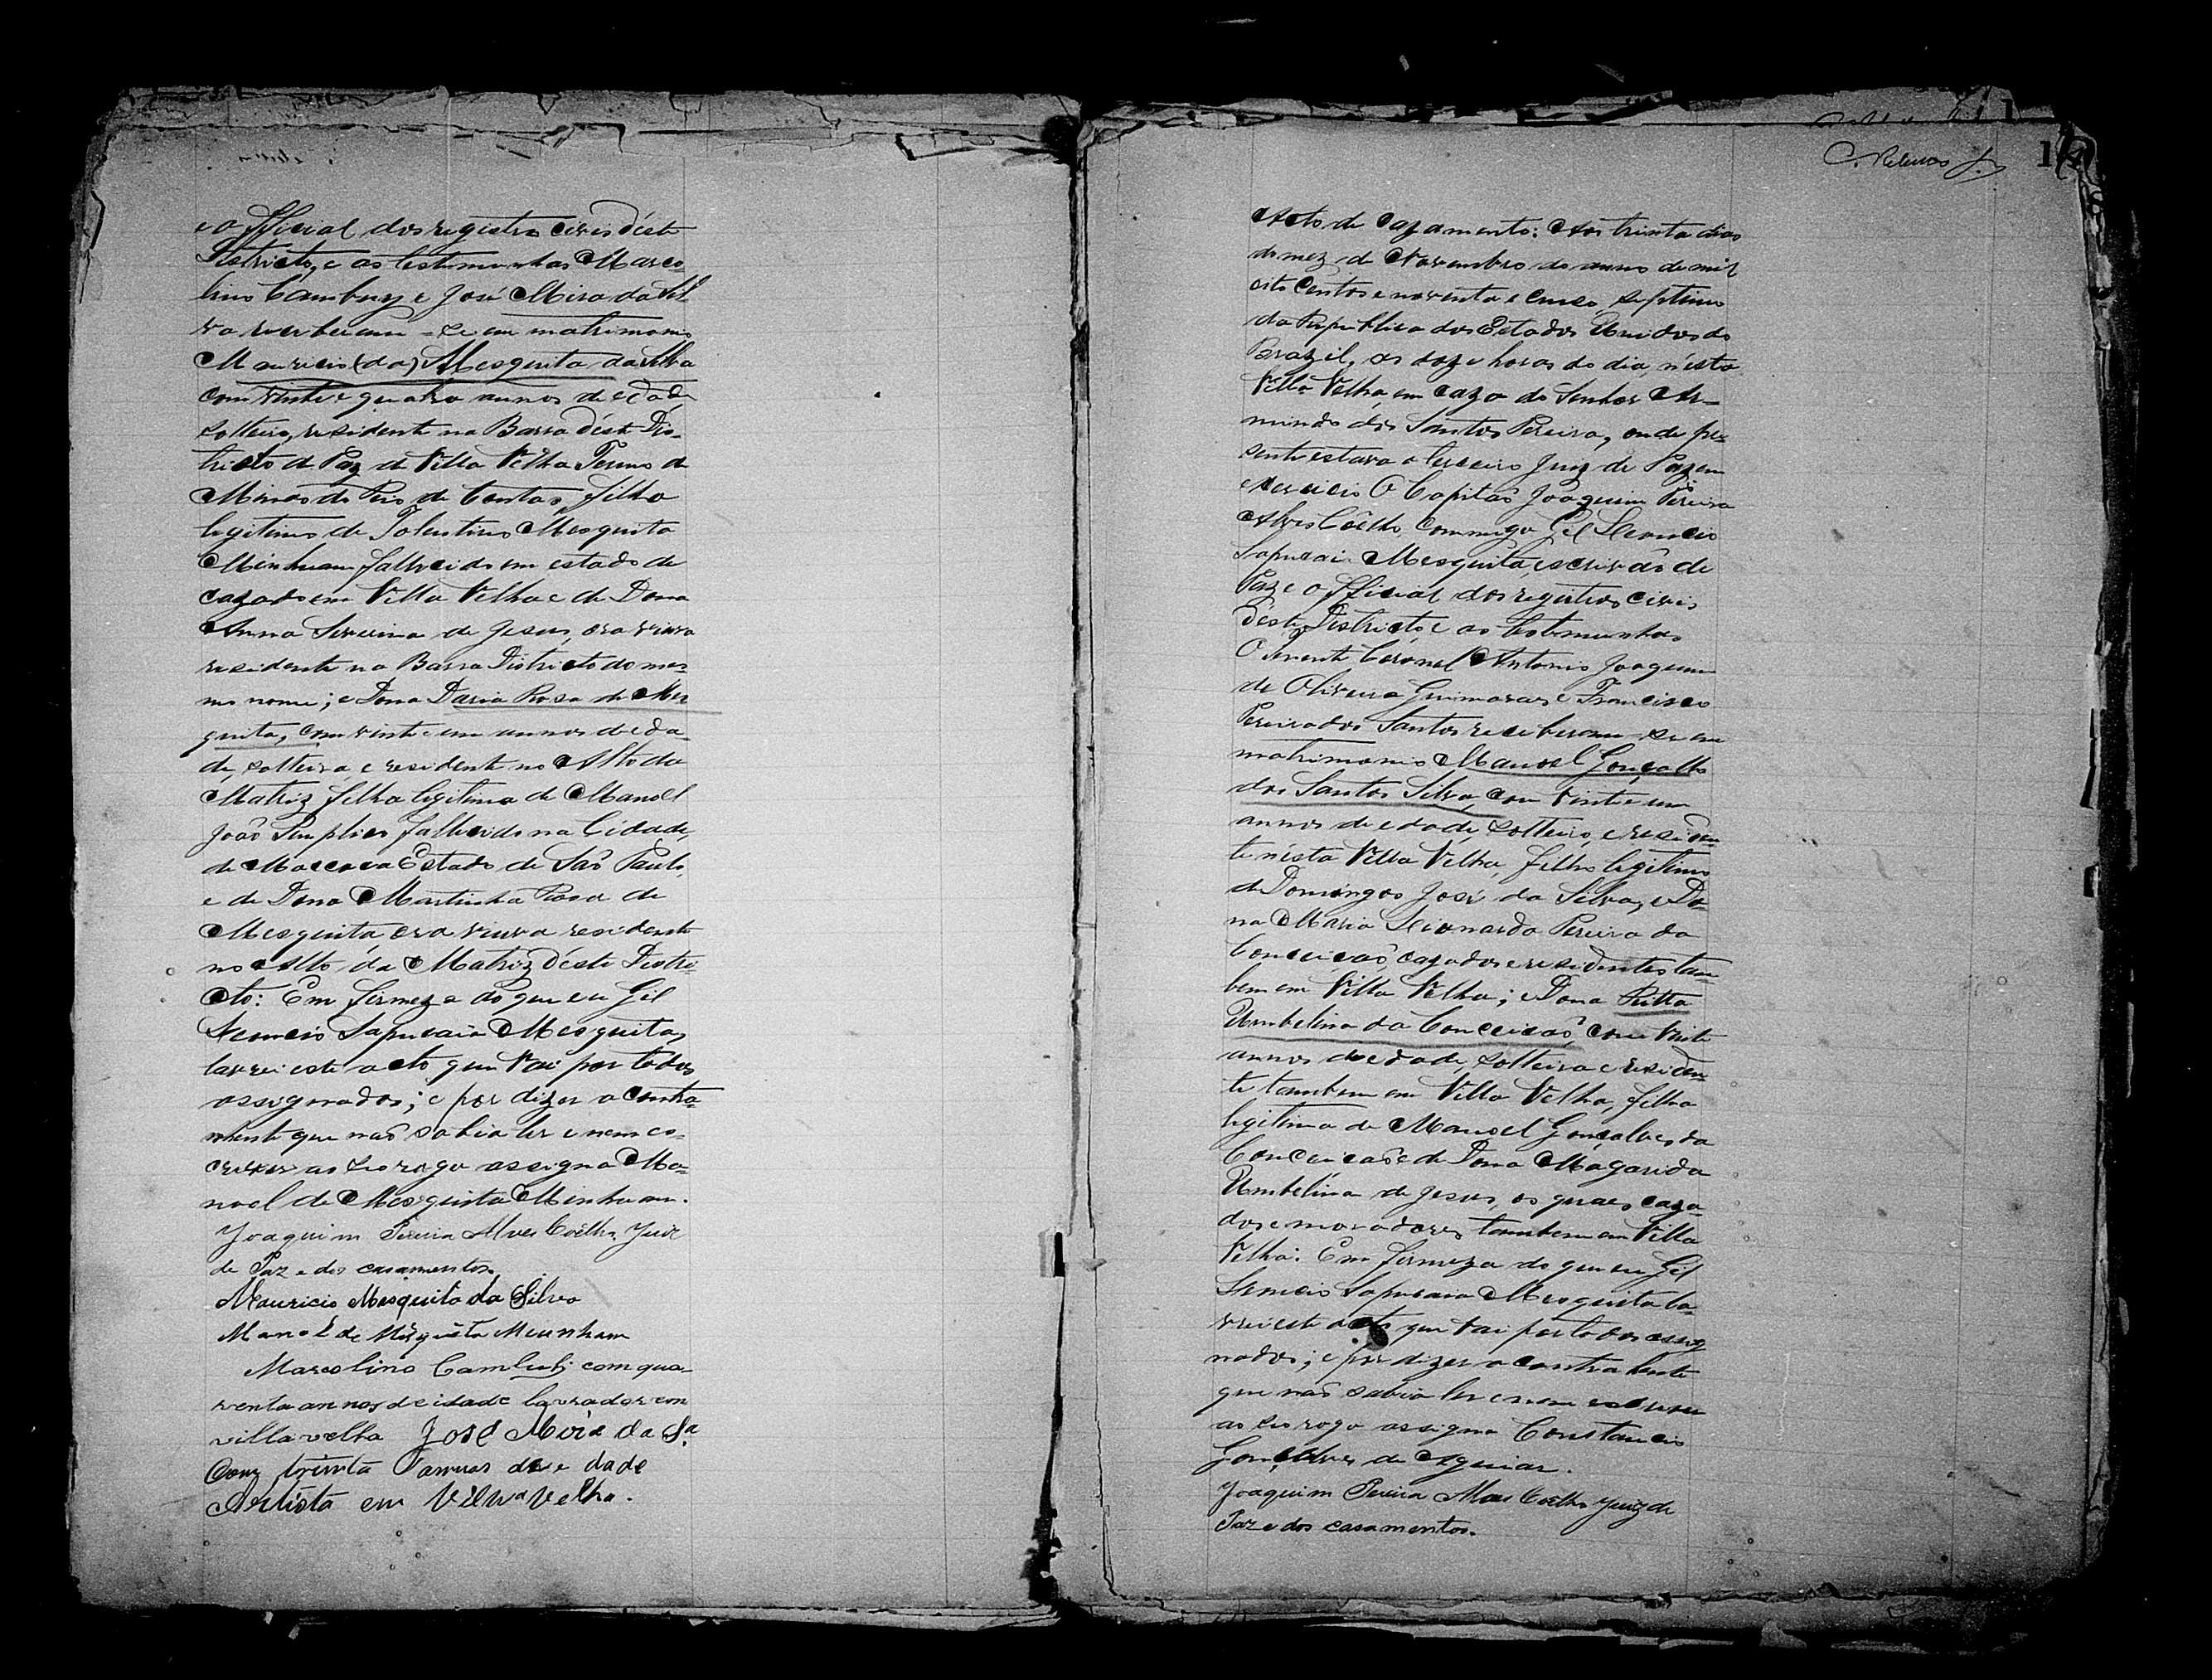 e o Official dos registros civis déste
Districto, e as testemunhas Marco-
lino Cambuy e José Mira da Sil-
va receberam-se em matrimonio
Mauricio (da) Mesquita da Silva
com vinte e quatro annos de edade
solteiro, residente na Barra déste Dis-
tricto de Paz de Villa Velha Termo de
Minas do Rio de Contas, filho
legitimo de Tolentino Mesquita
Minhuam fallecido em estado de
cazado em Villa Velha e de Dona
Anna Severina de Jesus, ora viuva
residente na Barra Districto do mes-
mo nome; e Dona Daria Rosa de Mes
quita, com vinte e um annos de eda-
de, solteira, e residente no Alto da
Matriz filha legitima de Manoel
João Simplicio fallecido na Cidade
de Mococa Estado de São Paulo,
e de Dona Martinha Rosa de
Mesquita ora viuva residente
no Alto da Matriz déste Distri-
cto: Em firmeza do que eu Gil
Leoncio Sapucaia Mesquita,
lavrei este acto que vai por todos
assignados; e por dizer a contra-
hente que não sabia ler e nem es-
crever ao seo rogo assigna Ma-
noel de Mesquita Minhuam.
Joaquim Pereira Alves Coêlho, Juiz
de Paz e dos casamentos
Mauricio Mesquita da Silva
Manoel de Misquita Meunham
Marcolino Cambuhi com qua-
renta annos de idade lavrador em
villa velha José Mira da Sª
Com trinta annos de edade
Artista em Villa Velha.
C. Velloso Jr.
1
Acto de cazamento: Aos trinta dias
do mez de Novembro do anno de mil
oito centos e noventa e cinco, septimo
da Republica dos Estados Unidos do
Brazil, as doze horas do dia, n'ésta
Villa Velha, em caza do Senhor Ar-
mindo dos Santos Pereira, onde pre-
sente estava o terceiro Juiz de Paz em
exercicio O Capitaõ Joaquim Pereira
Alves Coêlho, commigo Gil Leoncio
Sapucaia Mesquita, escrivão de
Paz e o Official dos registros civis
déste Districto, e as testemunhas
O Tenente Coronel Antonio Joaquim
de Oliveira Guimaraes e Francisco
Pereira dos Santos receberam-se em
matrimonio Manoel Gonçallo
dos Santos Silva, com vinte e um
annos de edade, solteiro, e residen-
te n'ésta Villa Velha, filho legitimo
de Domingos José da Silva, e Do-
na Maria Leonarda Pereira da
Conceição, cazados e residentes tam
bem em Villa Velha; e Dona Ritta
Umbelina da Conceicaõ, com vinte
annos de edade, solteira e residen-
te tambem em Villa Velha, filha
legitima de Manoel Gonçalves da
Conceicaõ e de Dona Magarida
Umbelina de Jesus, os quaes caza-
dos e moradores tambem em Villa
Velha: Em firmeza do que eu Gil
Leoncio Sapucaia Mesquita la-
vrei este acto que vai por todos assig
nados; e por dizer a contrahente
que não sabia ler e nem escrever
ao seo rogo assigna Constancio
Gonçalves de Aguiar.
Joaquim Pereira Alves Coêlho Juiz de
Paz e dos casamentos.